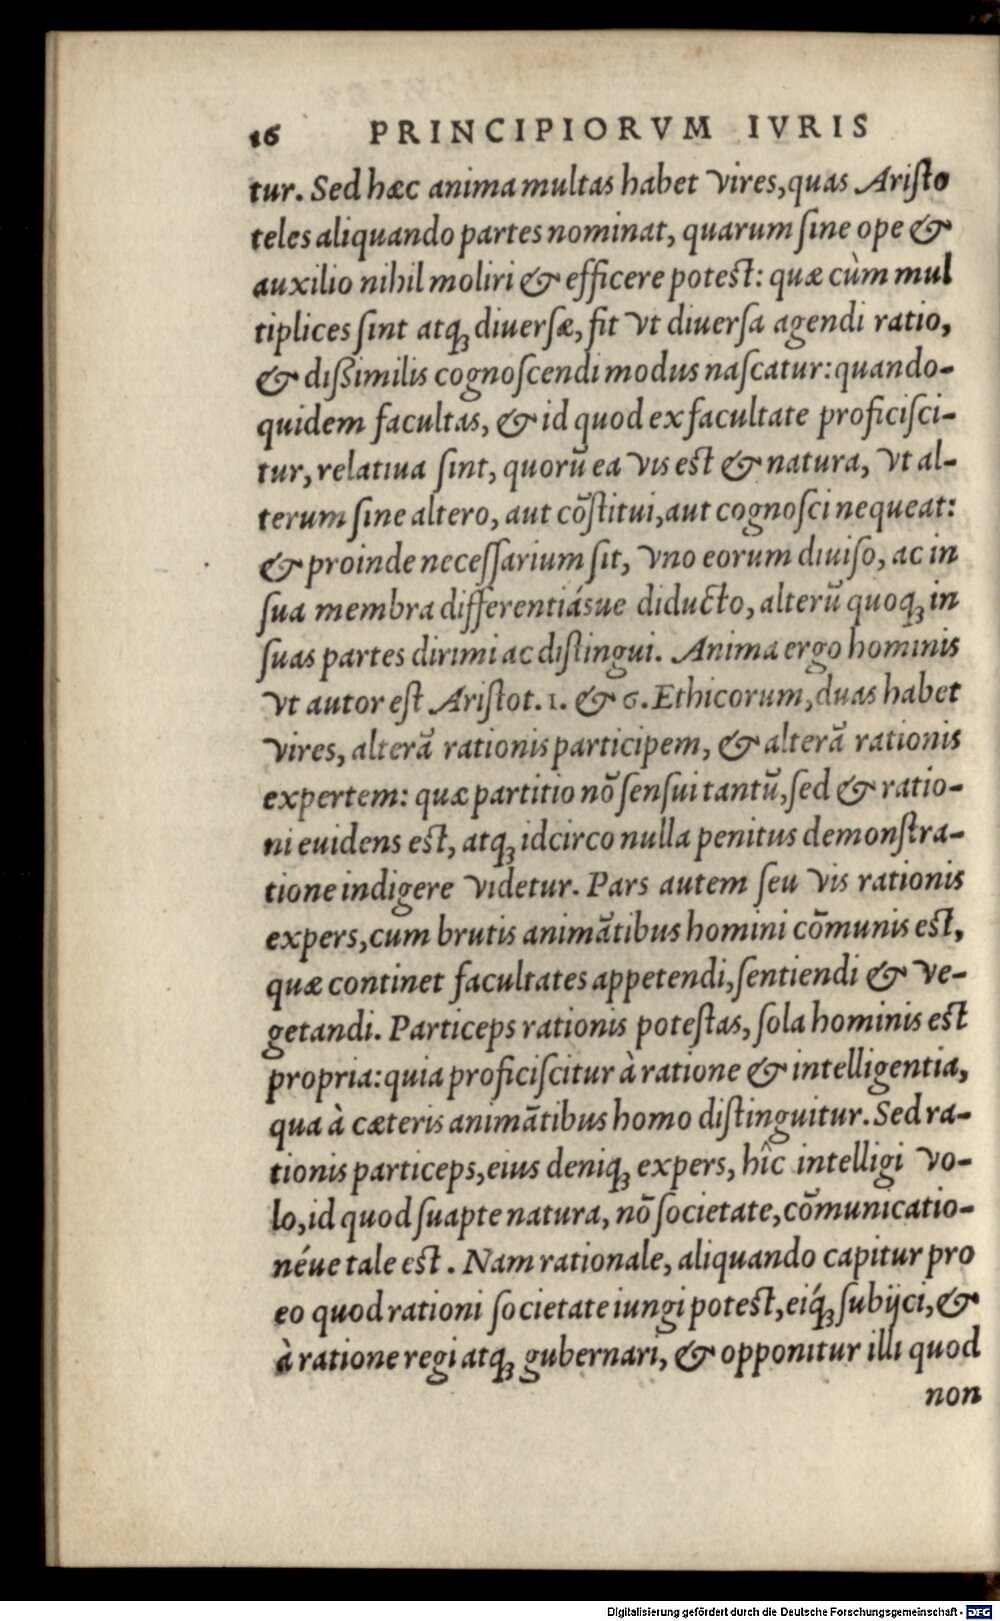 16 PRINCIPIORVM IVRIS
tur. Sed hæc anima multas habet vires, quas Aristo
teles aliquando partes nominat, quarum sine ope &
auxilio nihil moliri & efficere potest: quæ cùm mul
tiplices sint atq; diuersæ, fit vt diuersa agendi ratio,
& dißimilis cognoscendi modus nascatur: quando-
quidem facultas, & id quod ex facultate proficisci-
tur, relatiua sint, quorũ ea vis est & natura, vt al-
terum sine altero, aut cõstitui, aut cognosci nequeat:
& proinde necessarium sit, vno eorum diuiso, ac in
sua membra differentiásue diducto, alterũ quoq; in
suas partes dirimi ac distingui. Anima ergo hominis
vt autor est Aristot. 1. & 6. Ethicorum, duas habet
vires, alterã rationis participem, & alterã rationis
expertem: quæ partitio nõ sensui tantũ, sed & ratio-
ni euidens est, atq; idcirco nulla penitus demonstra-
tione indigere videtur. Pars autem seu vis rationis
expers, cum brutis animãtibus homini cõmunis est,
quæ continet facultates appetendi, sentiendi & ve-
getandi. Particeps rationis potestas, sola hominis est
propria: quia proficiscitur à ratione & intelligentia,
qua à cæteris animãtibus homo distinguitur. Sed ra-
tionis particeps, eius deniq; expers, hîc intelligi vo-
lo, id quod suapte natura, nõ societate, cõmunicatio-
néue tale est. Nam rationale, aliquando capitur pro
eo quod rationi societate iungi potest, eiq́; subijci, &
à ratione regi atq; gubernari, & opponitur illi quod
non
Digitalisierung gefördert durch die Deutsche Forschungsgemeinschaft - DFG